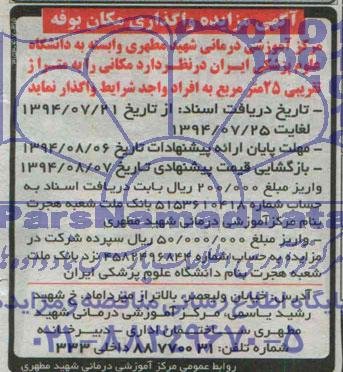 آگهی مزایده واگذاری مکان بوفه
مرکز آموزشی درمانی شهید مطهری وابسته به دانشگاه
علوم پزشکی ایران در نظر دارد مکانی را به متراژ
تقریبی ۲۵متر مربع به افراد واجد شرایط واگذار نماید
- تاریخ دریافت اسناد: از تاریخ ۱۳۹۴/۰۷/۲۱
لغایت ۱۳۹۴/۰۷/۲۵
- مهلت پایان ارائه پیشنهادات تاریخ ۱۳۹۴/۰۸/۰۶
- بازگشایی قیمت پیشنهادی تاریخ ۱۳۹۴/۰۸/۰۷
واریز مبلغ ۲۰۰/۰۰۰ ریال بابت دریافت اسناد به
حساب شماره ۵۱۵۳۶۱۰۴۱۸ بانک ملت شعبه هجرت
بنام مرکز آموزشی درمانی شهید مطهری
- واریز مبلغ ۵۰/۰۰۰/۰۰۰ ریال سپرده شرکت در
مزایده به حساب شماره نزد بانک ملت
شعبه هجرت بنام دانشگاه علوم پزشکی ایران
- آدرس: خیابان ولیعصر، بالاتر از میرداماد، خ شهید
رشید یاسمی، مرکز آموزشی درمانی شهید
مطهری ساختمان اداری دبیرخانه
شماره تلفن: ۳۱ ۷۷۰۰ ۸۸ داخلی ۳۳۳
روابط عمومی مرکز آموزشی درمانی شهید مطهری
ParsNamadData
۰۲۱-۸۸۳۴۹۶۷۰-۵